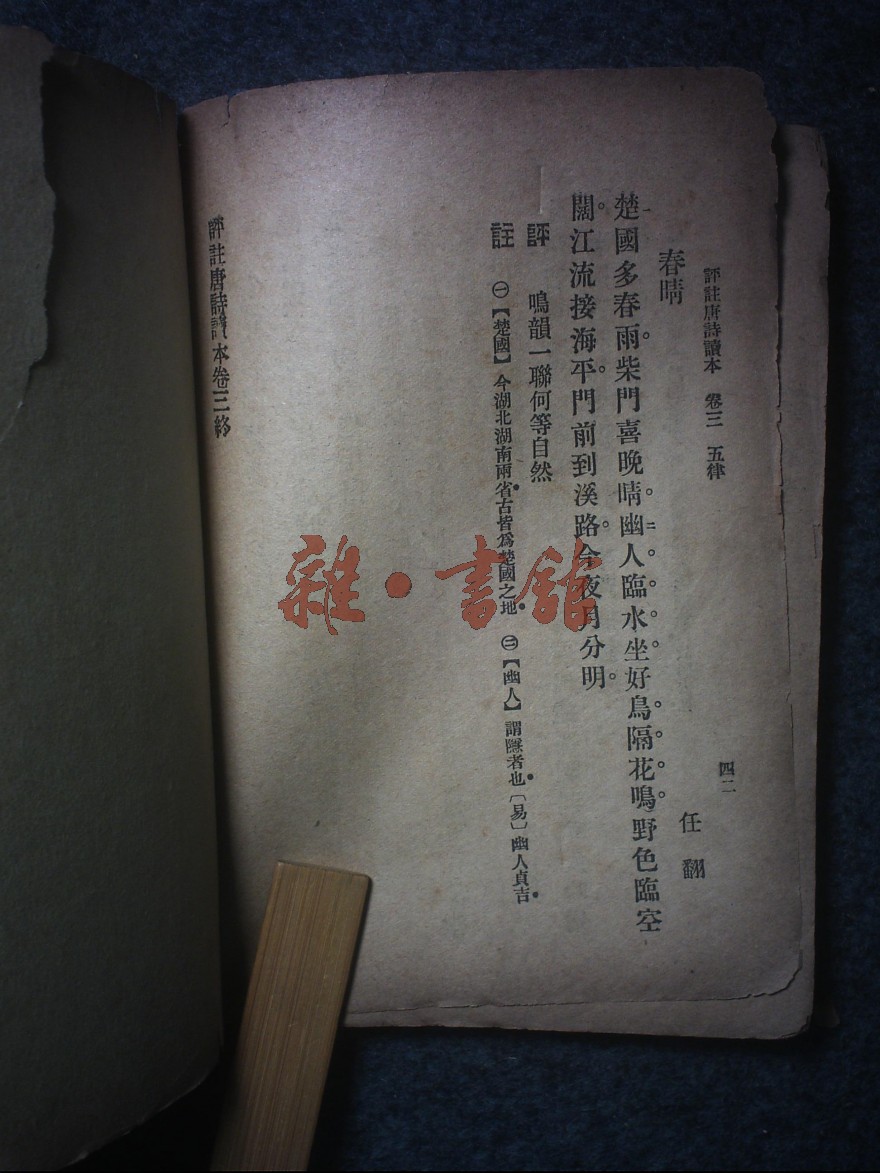 評註唐詩讀本　卷三　五律　四二
春晴　任翻
楚國多春雨柴門喜晚晴幽人臨水坐好鳥隔花鳴野色臨空
闊江流接海平門前到溪路今夜月分明
評　鳴韻一聯何等自然
註　㊀【楚國】今湖北湖南兩省古皆爲楚國之地　㊁【幽人】謂隱者也〔易〕幽人貞吉
評註唐詩讀本卷三終
雜·書館